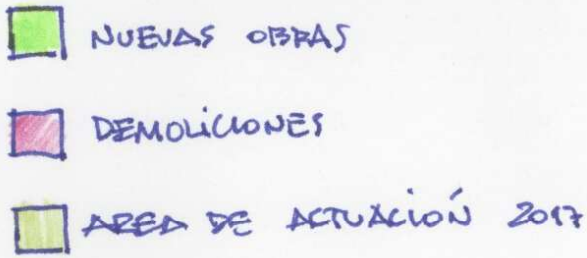 NUEVAS OBRAS
DEMOLICIONES
AREA DE ACTUACIÓN 2017